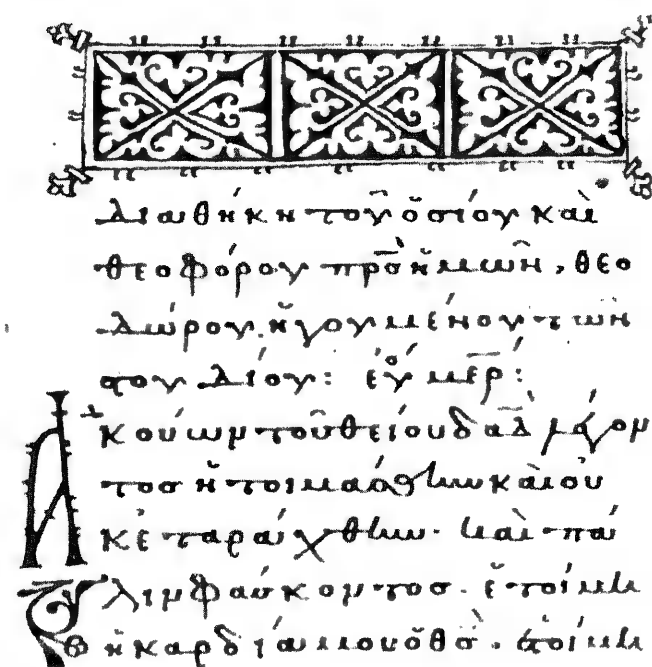 Διαθήκη τοῦ ὁσίου καὶ
θεοφόρου πρς ἡμῶν, θεο
δώρου ἡγουμένου τῶν
στουδίου:
Ἀκούων τοῦ θείου δαδ λέγον
τος ἡτοιμάσθην καὶ οὐ
κ ἐταράχθην. καὶ πά
λιν φάσκοντος. ἑτοίμη
ἡ καρδία μου ὁ θς. ἑτοίμη